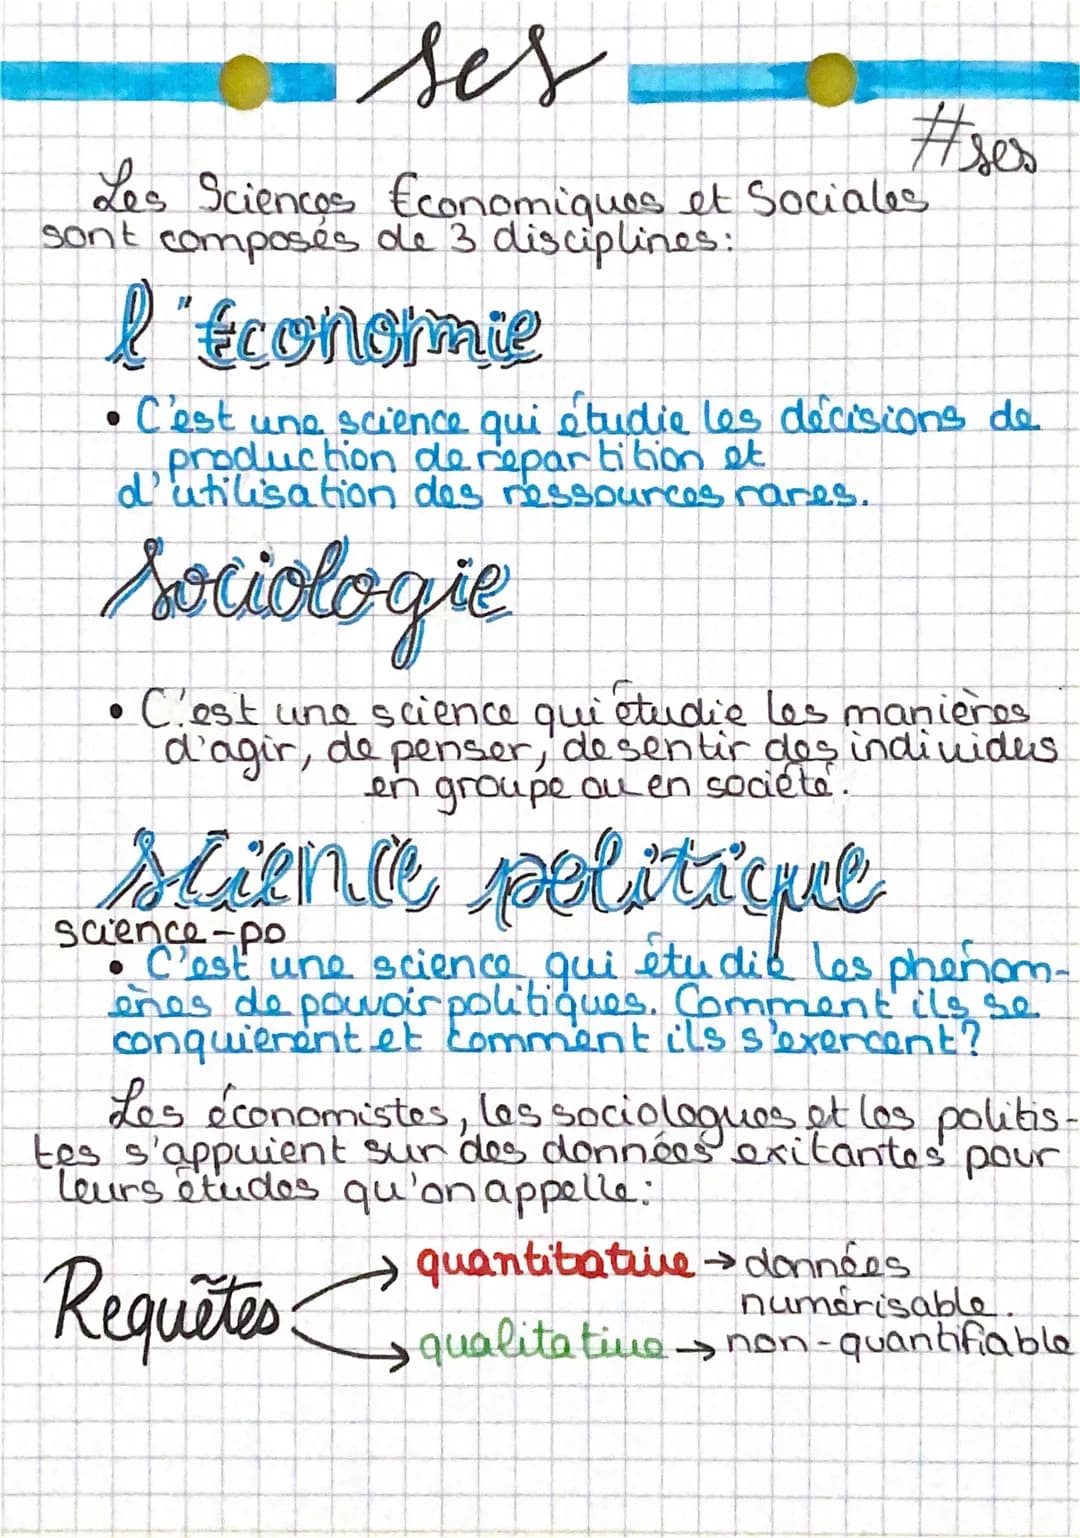 ses
#ses
Les Sciences Économiques et Sociales
sont composés de 3 disciplines:
l'Économie
• C'est une science qui étudie les décisions de
production de repartition et
d'utilisation des ressources rares.
Sociologie
• C'est une science qui étudie les manières
d'agir, de penser, de sentir des individus
en groupe ou en société.
science politique
science-po
• C'est une science qui étudie les phénom-
ènes de pouvoir politiques. Comment ils se
conquièrent et comment ils s'exercent?
Les économistes, les sociologues et les politis-
tes s'appuient sur des données exitantes pour
leurs études qu'on appelle:
Requêtes → quantitative → données
numérisable.
→ qualitative → non-quantifiable